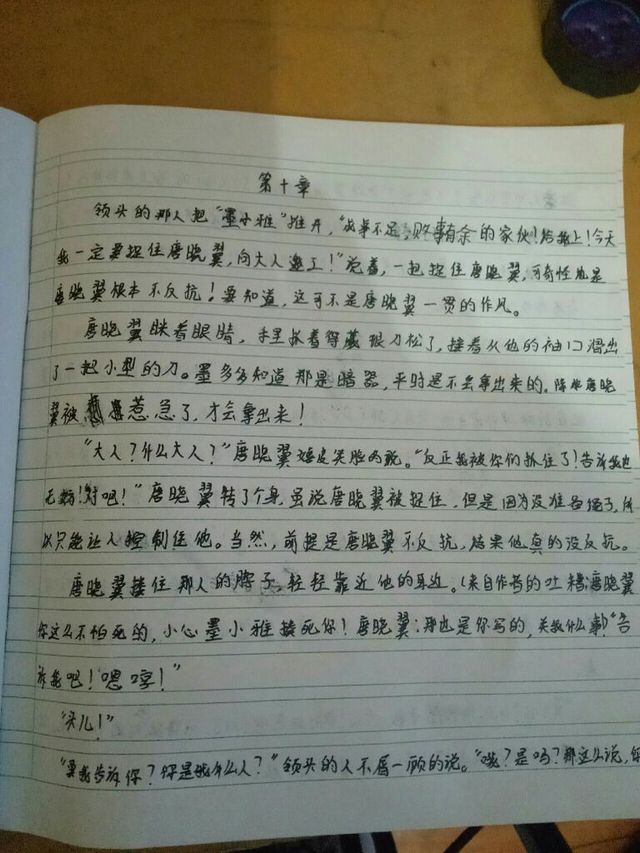 第十章
领头的那人把“墨小雅”推开，“成事不足，败事有余的家伙！给我上！今天
我一定要捉住唐晓翼，向大人邀工！”说着，一把捉住唐晓翼，可奇怪的是
唐晓翼根本不反抗！要知道，这可不是唐晓翼一贯的作风。
唐晓翼眯着眼睛，手里抓着得 银刀松了，接着从他的袖口滑出
了一把小型的刀。墨多多知道那是暗器，平时是不会拿出来的。除非唐晓
翼被惹急了，才会拿出来！
“大人？什么大人？”唐晓翼嬉皮笑脸的说。“反正我被你们抓住了！告诉我也
无妨！好吧！”唐晓翼转了个身，虽说唐晓翼被捉住，但是因为没准备绳子，所
以只能让人控制住他。当然，前提是唐晓翼不反抗，结果他真的没反抗。
唐晓翼搂住那人的脖子，轻轻靠近他的身边。（来自作者的吐糟：唐晓翼
你这么不怕死的，小心墨小雅揍死你！唐晓翼：那也是你写的，关我什么事）“告
诉我吧！嗯哼！”
“头儿！”
“要我告诉你？你是我什么人？”领头的人不屑一顾的说。“哦？是吗？那这么说，你